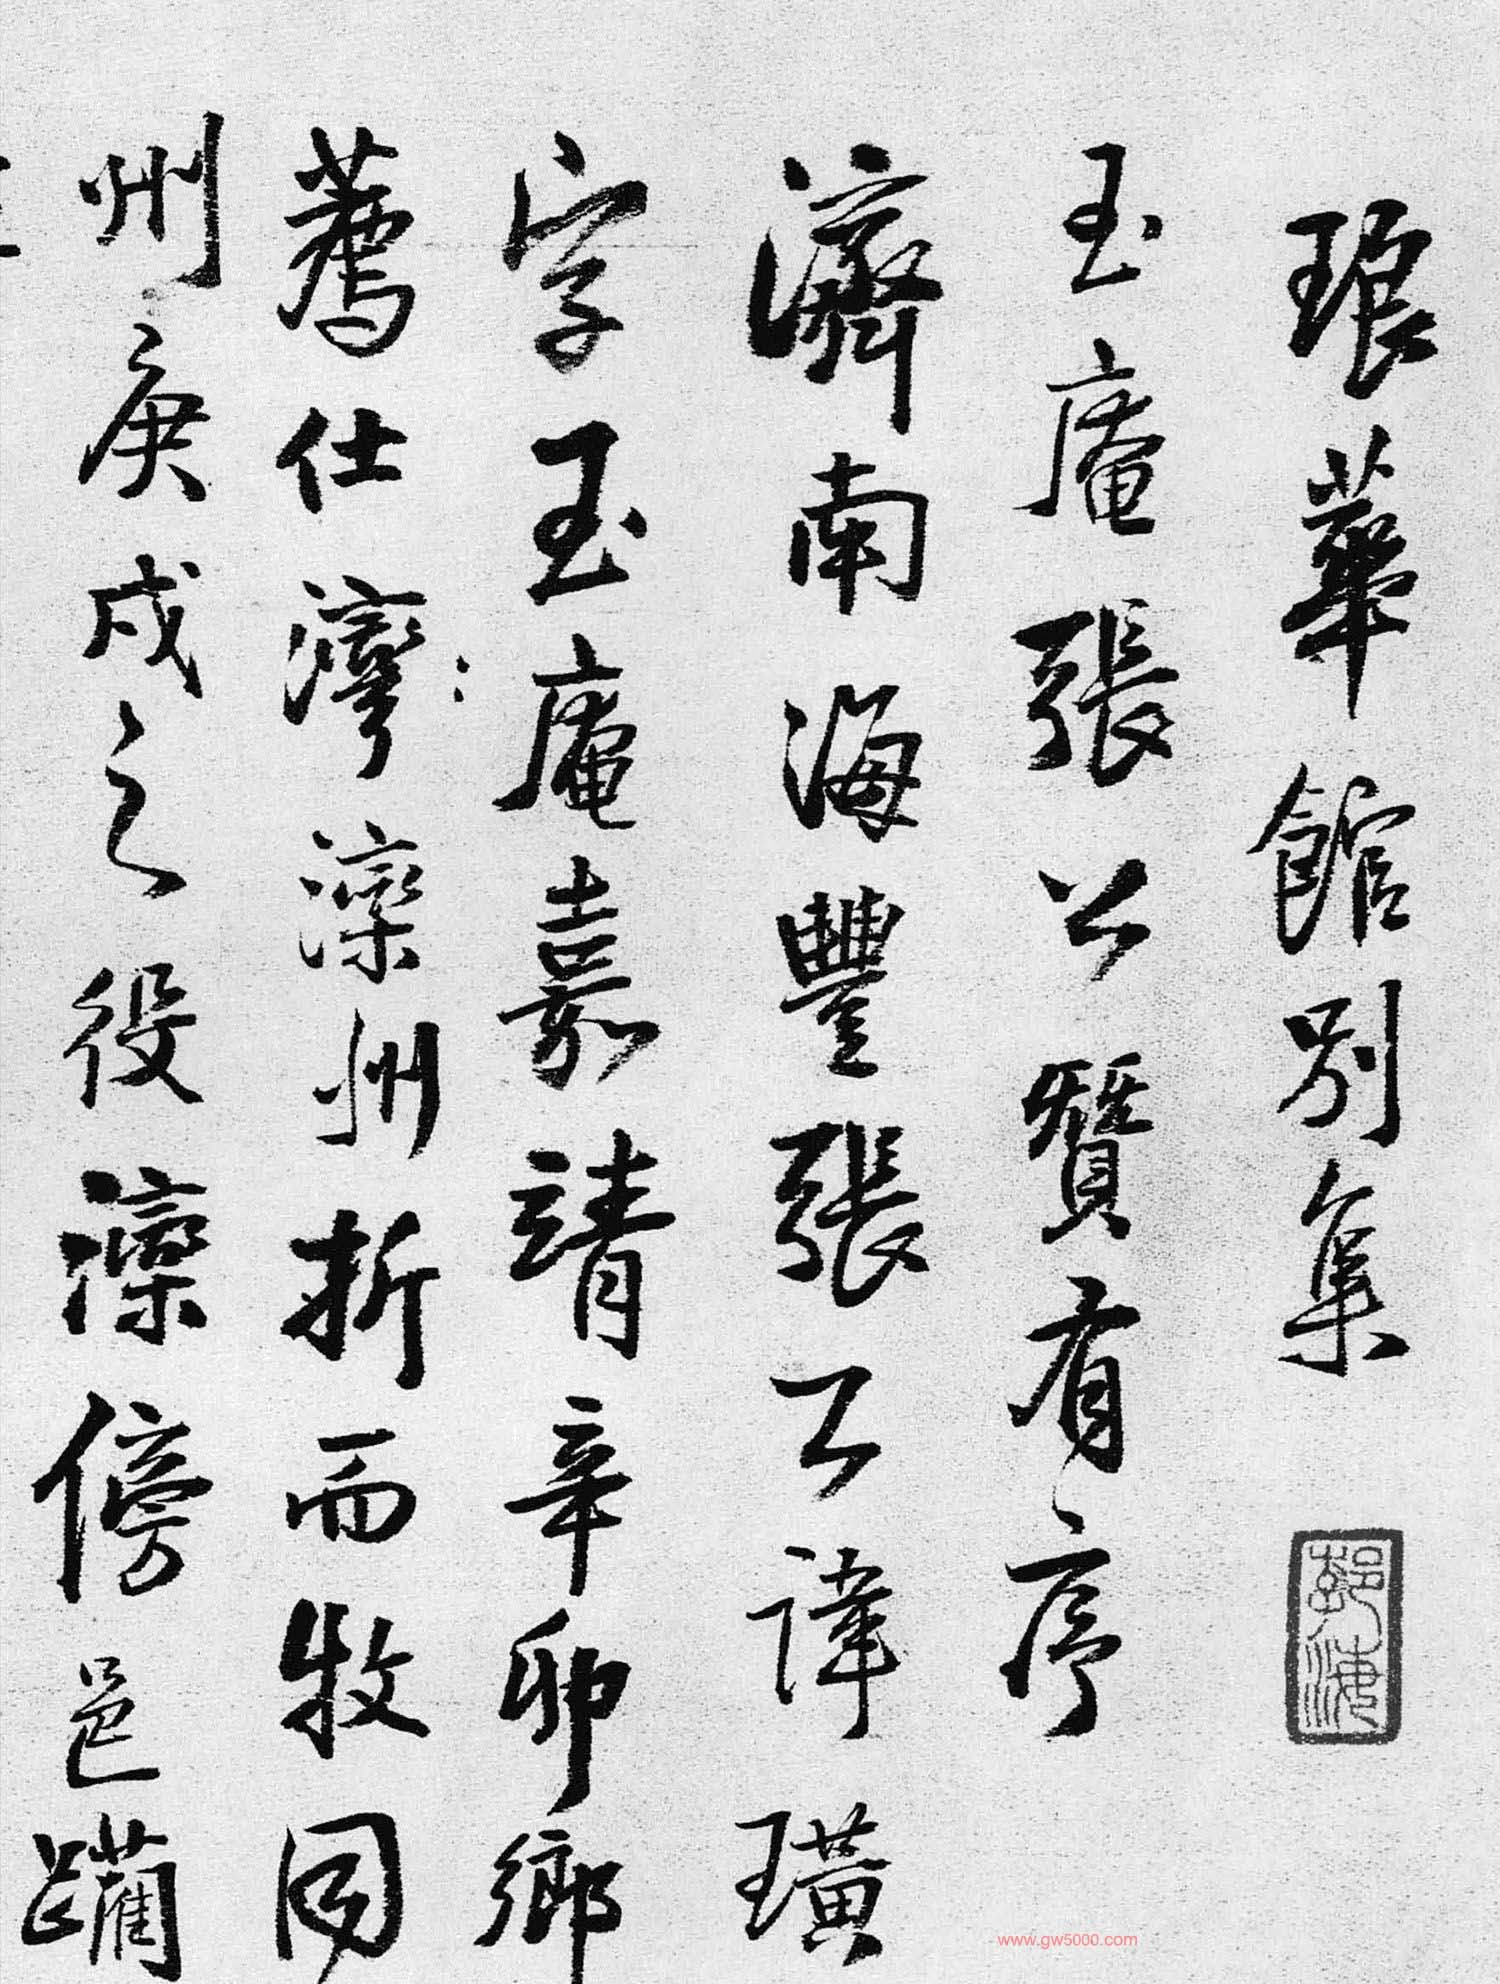 琅華館別集
玉庵張公贊有序
濟南海豐張公諱璜
字玉庵嘉靖辛卯鄉
薦仕灣灤州折而牧同
州庚戌之役灤傍邑躪
www.gw5000.com